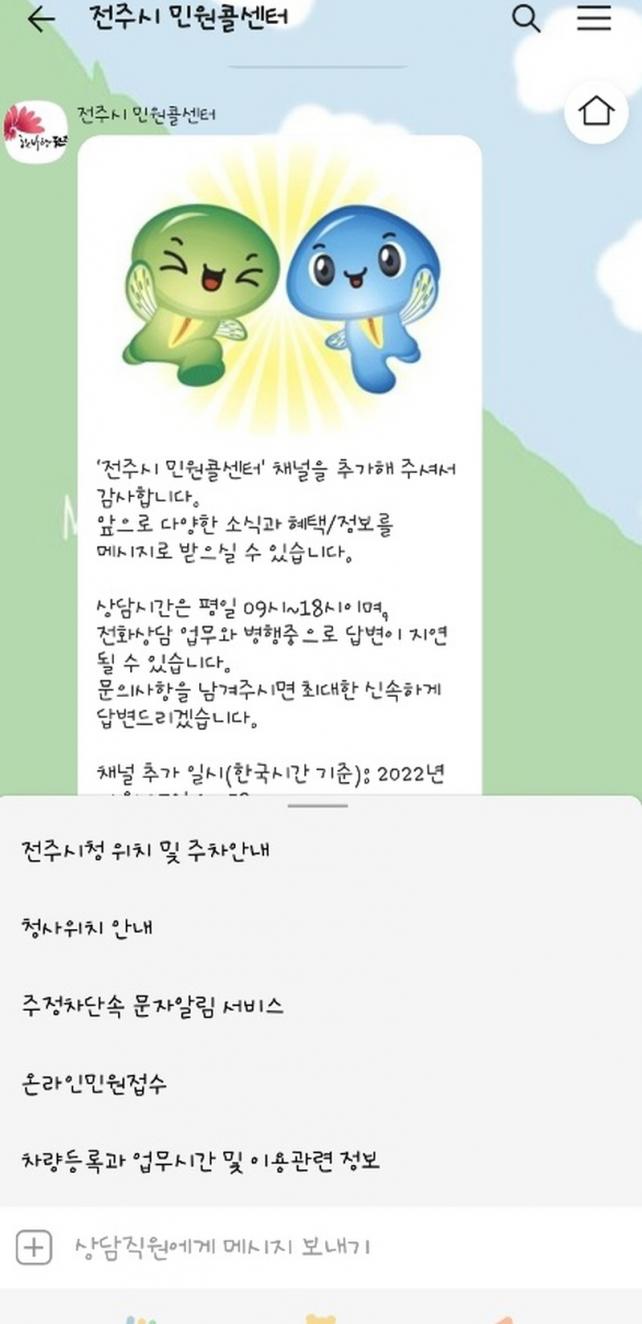 전주시 민원콜센터
전주시 민원콜센터
'전주시 민원콜센터' 채널을 추가해 주셔서
감사합니다.
앞으로 다양한 소식과 혜택/정보를
메시지로 받으실 수 있습니다.
상담시간은 평일 09시~18시이며,
전화상담 업무와 병행중으로 답변이 지연
될 수 있습니다.
문의사항을 남겨주시면 최대한 신속하게
답변드리겠습니다.
채널 추가 일시(한국시간 기준): 2022년
전주시청 위치 및 주차안내
청사위치 안내
주정차단속 문자알림 서비스
온라인민원접수
차량등록과 업무시간 및 이용관련 정보
상담직원에게 메시지 보내기